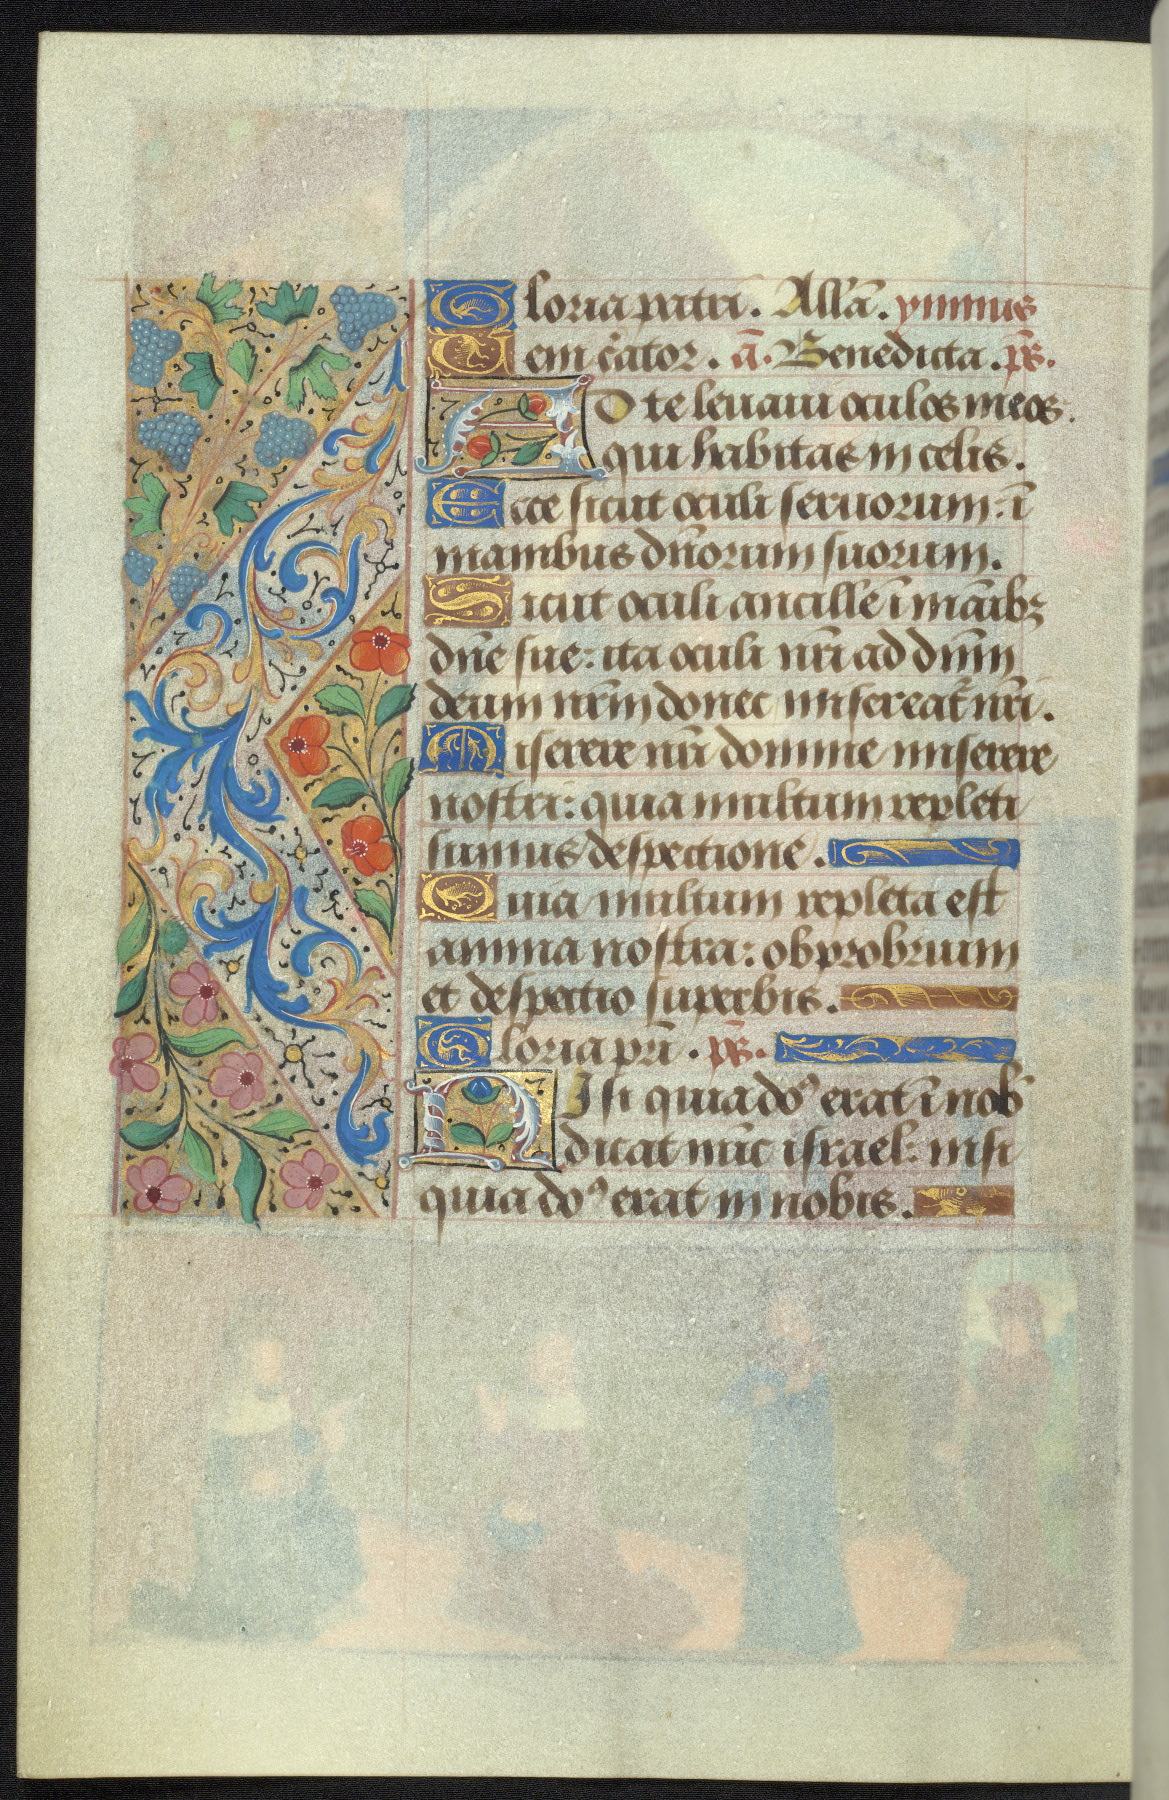 Gloria patri. Allā. ymnus
Uem c̄ator. ā. Benedicta. p̄s.
AD te levavi oculos meos.
qui habitas in celis.
Ecce sicut oculi servorum: ī
manibus dn̄orum suorum.
Sicut oculi ancille ī māibꝫ
dn̄e sue: ita oculi nr̄i ad dnm̄
deum nr̄m donec misereat᷑ nr̄i.
Miserere nr̄i domine miserere
nostri: quia multum repleti
sumus despectione.
Quia multum repleta est
anima nostra: obprobrium
et despectio superbis.
Gloria pr̄i. p̄s.
NIsi quia doꝰ erat ī nob̄
dicat nūc israel: nisi
quia doꝰ erat in nobis.